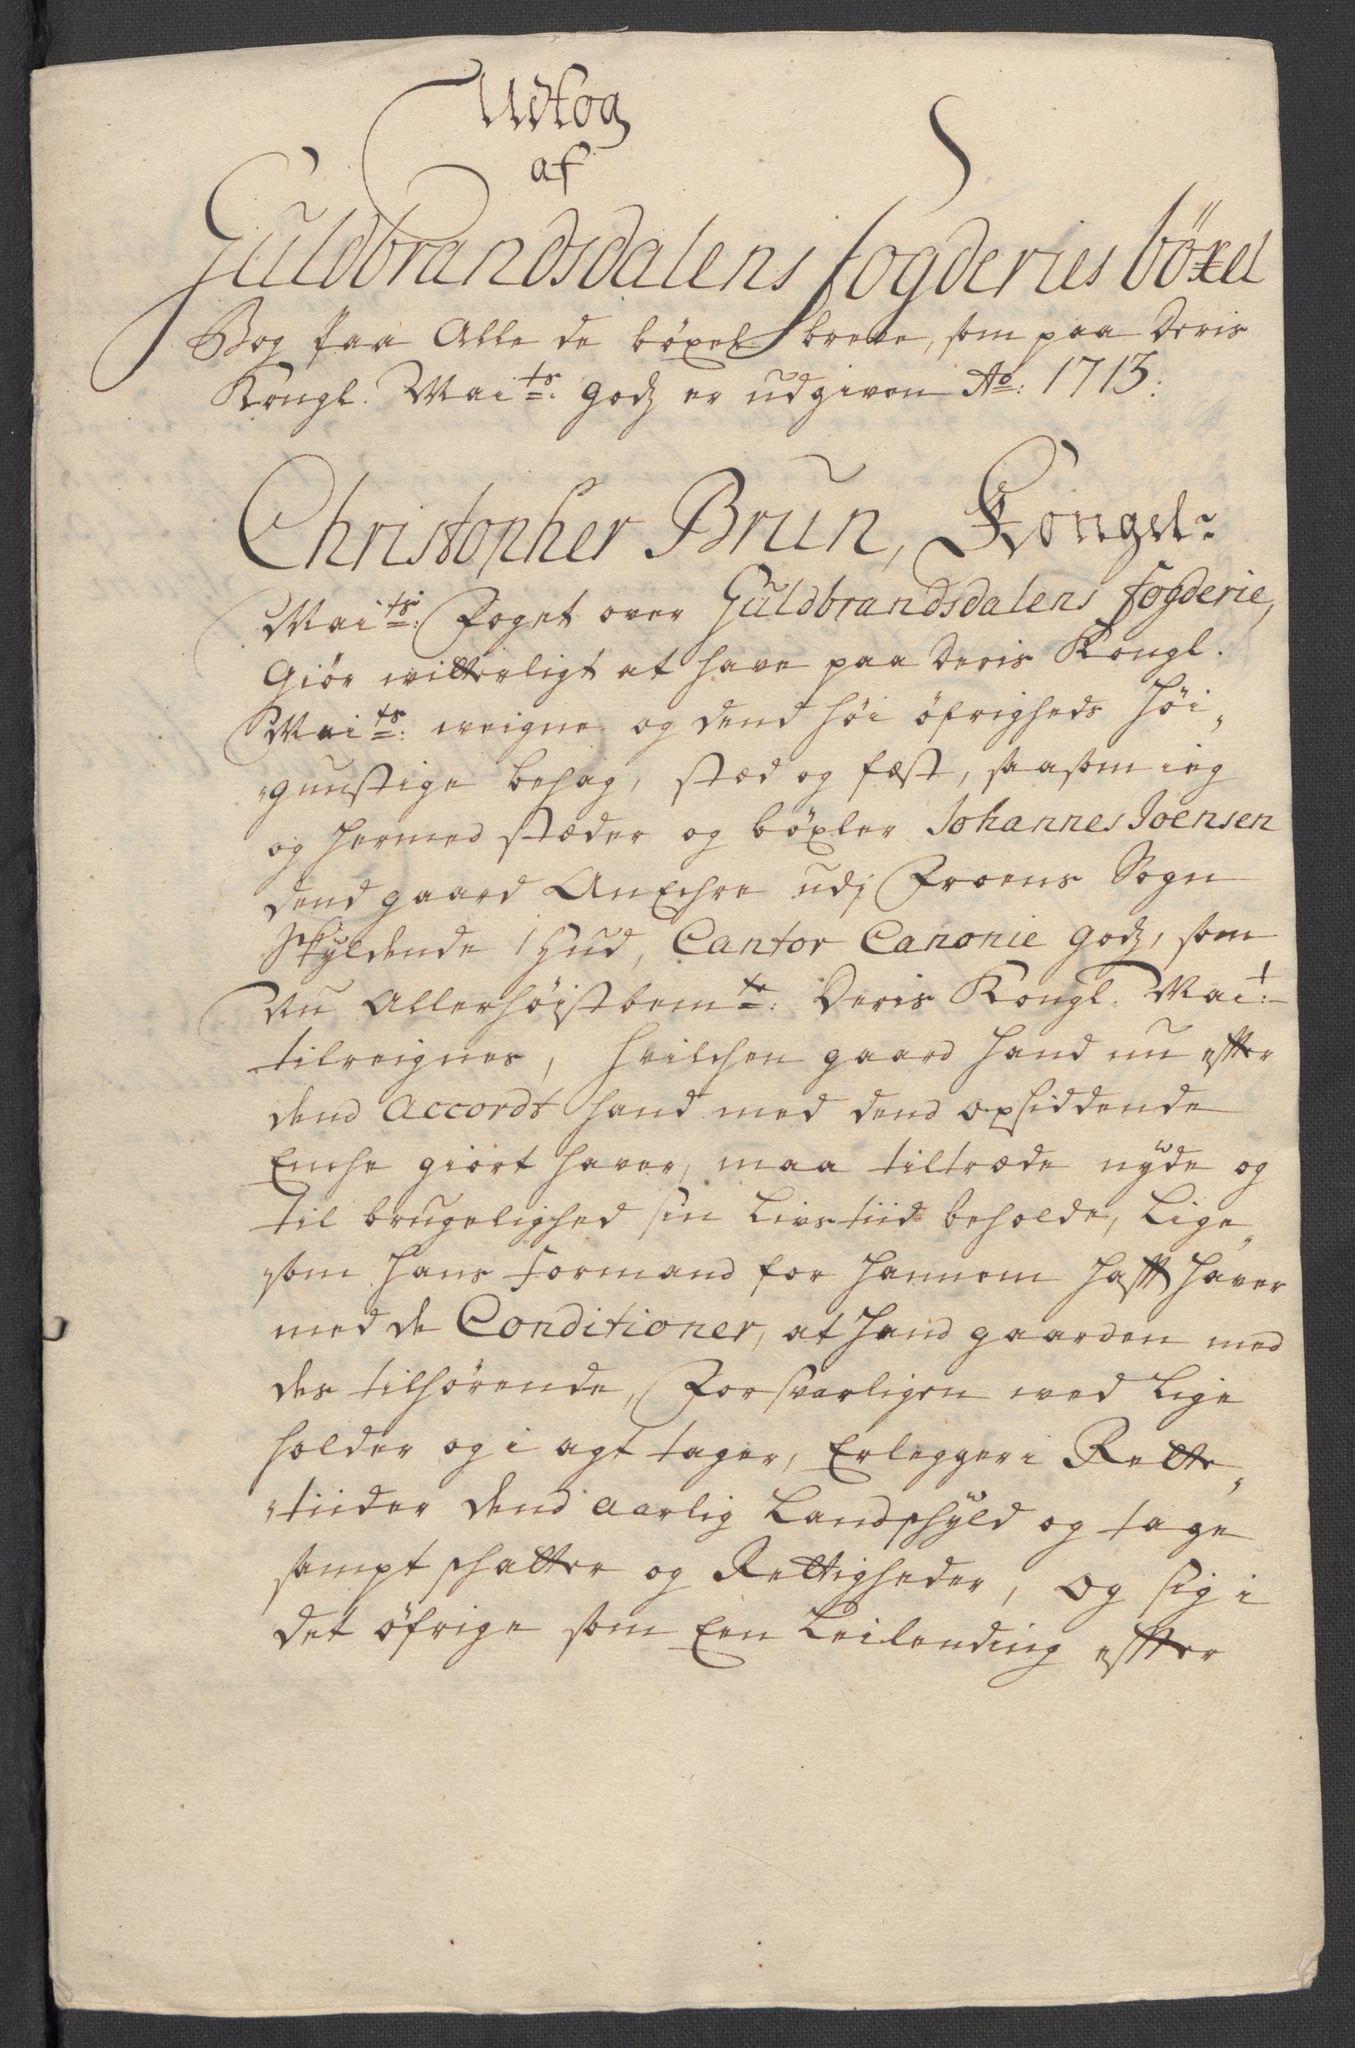 Udtog
af
Guldbrandsdalens fogderies böxel
Bog paa Alle de böxel breve, som paa Deris
Kongl. Mai<sup>ts</sup>: godz er udgiven Ao: 1713:
Christopher Brun, Kongel:
Mai<sup>ts</sup>: Foget over Guldbrandsdalens fogderie,
Giör witterligt at have paa Deris Kongl.
Mai<sup>ts</sup>: weigne og dend höi öfrigheds Höi„
„gunstige behag, stæd og fæst, saasom ieg
og hermed stæder og böxler Johannes Joensen
dend gaard udj Froens Sogn
Skyldende 1 Hud, Cantor Canonie godz, som
nu Allerhöistbem<sup>te</sup>: Deris Kongl. Mai<sup>t</sup>:
tilreignes, hvilchen gaard hand nu effter
dend Accordt hand med dend opsiddende
Enche giort haver, maa tiltræde nyde og
til brugelighed sin Livs tiid beholde, Lige„
„som hans formand for hannem hafft haver
med de Conditioner, at hand gaarden med
des tilhörende, Forsvarligen ved Lige
holder og i agt tager, Erlegger i Rette„
„tiider dend aarlig Landschyld og tage
sampt schatter og Rettigheder, og sig i
det öfrige som Een Leilending effter